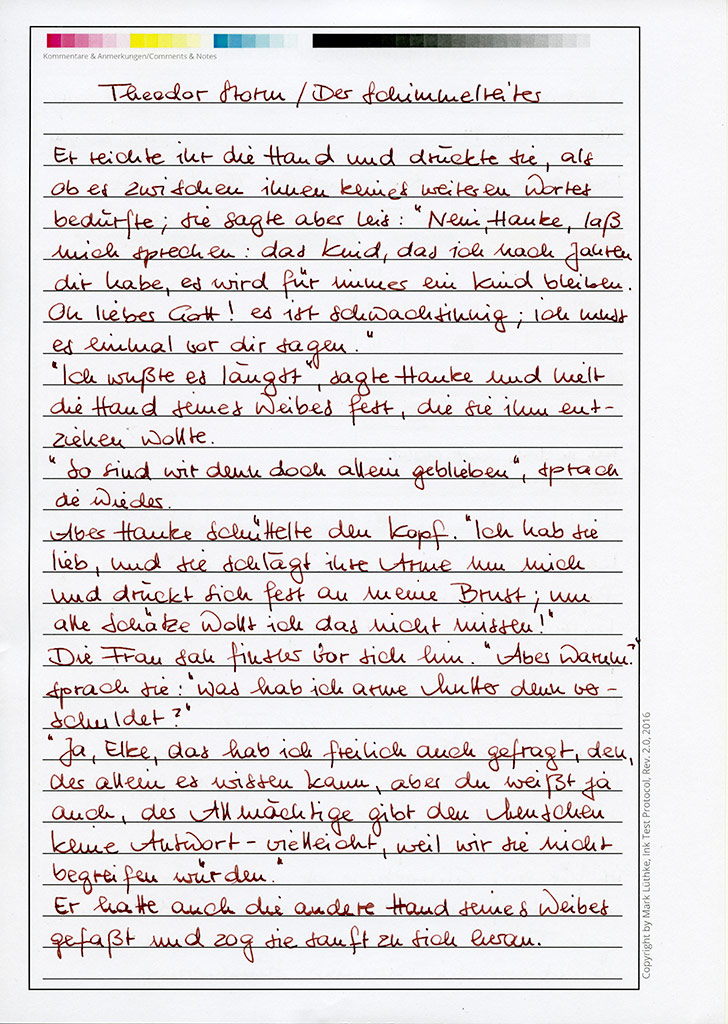 Kommentare & Anmerkungen/Comments & Notes
Theodor Storm / Der Schimmelreiter
Er reichte ihr die Hand und drückte sie, als
ob es zwischen ihnen keines weiteren Wortes
bedürfte; sie sagte aber leis: "Nein, Hauke, laß
mich sprechen: das Kind, das ich nach Jahren
dir habe, es wird für immer ein Kind bleiben.
Oh lieber Gott! es ist schwachsinnig; ich muss
es einmal vor dir sagen."
"Ich wußte es längst", sagte Hauke und hielt
die Hand seines Weibes fest, die sie ihm ent-
ziehen wollte.
"So sind wir denn doch allein geblieben", sprach
sie wieder.
Aber Hauke schüttelte den Kopf. "Ich hab sie
lieb, und sie schlägt ihre Arme um mich
und drückt sich fest an meine Brust; um
alle Schätze wollt ich das nicht missen!"
Die Frau sah finster vor sich hin. "Aber warum?"
sprach sie: "was hab ich arme Mutter denn ver-
schuldet?"
"Ja, Elke, das hab ich freilich auch gefragt, den,
der allein es wissen kann, aber du weißt ja
auch, der Allmächtige gibt den Menschen
keine Antwort - vielleicht, weil wir sie nicht
begreifen würden."
Er hatte auch die andere Hand seines Weibes
gefaßt und zog sie sanft zu sich heran.
Copyright by Mark Lüthke, Ink Test Protocol, Rev. 2.0, 2016